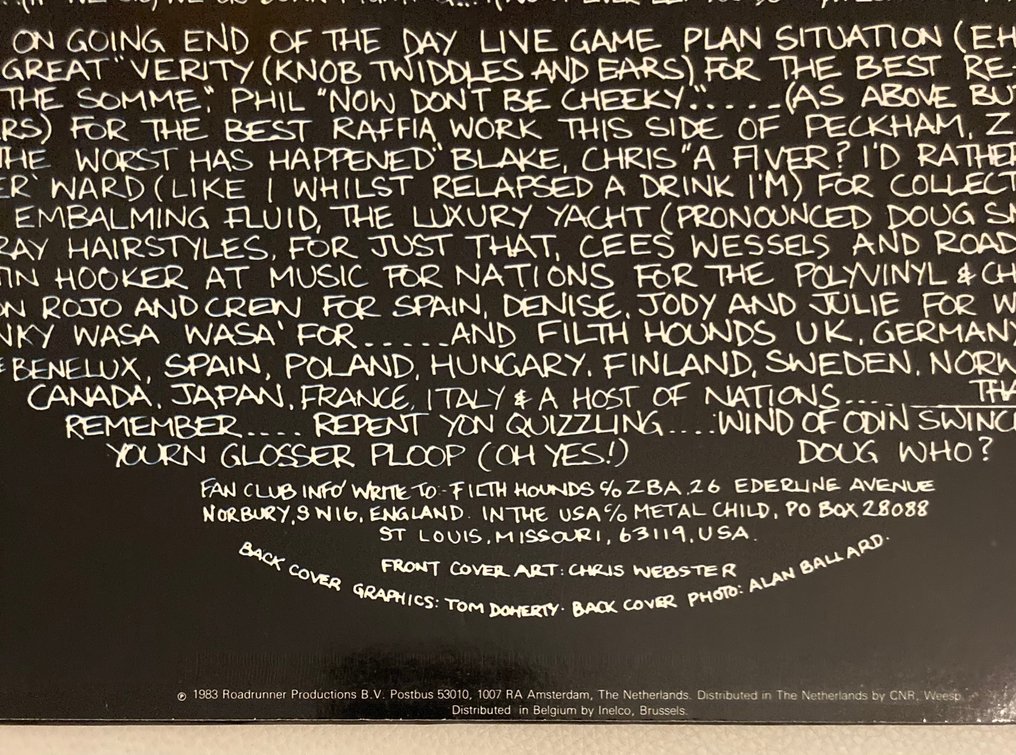 ON GOING END OF THE DAY LIVE GAME PLAN SITUATION (EH
GREAT" VERITY (KNOB TWIDDLES AND EARS) FOR THE BEST RE-
THE SOMME". PHIL "NOW DON'T BE CHEEKY"..... (AS ABOVE BU
RS) FOR THE BEST RAFFIA WORK THIS SIDE OF PECKHAM, Z
THE WORST HAS HAPPENED" BLAKE, CHRIS "A FIVER? I'D RATHER
ER" WARD (LIKE I WHILST RELAPSED A DRINK I'M) FOR COLLECT
EMBALMING FLUID, THE LUXURY YACHT (PRONOUNCED DOUG SM
RAY HAIRSTYLES, FOR JUST THAT, CEES WESSELS AND ROAD
TIN HOOKER AT MUSIC FOR NATIONS FOR THE POLYVINYL & CH
ON ROJO AND CREW FOR SPAIN, DENISE, JODY AND JULIE FOR W
NKY WASA WASA" FOR......AND FILTH HOUNDS UK, GERMANY
BENELUX, SPAIN, POLAND, HUNGARY, FINLAND, SWEDEN, NORW
CANADA, JAPAN, FRANCE, ITALY & A HOST OF NATIONS.... THA
REMEMBER.... REPENT YON QUIZZLING....WIND OF ODIN SWING
YOURN GLOSSER PLOOP (OH YES!) DOUG WHO?
FAN CLUB INFO' WRITE TO:- FILTH HOUNDS c/o ZBA, 26 EDERLINE AVENUE
NORBURY, SW16, ENGLAND. IN THE USA c/o METAL CHILD, PO BOX 28088
ST LOUIS, MISSOURI, 63119, USA.
FRONT COVER ART: CHRIS WEBSTER
BACK COVER GRAPHICS: TOM DOHERTY. BACK COVER PHOTO: ALAN BALLARD.
℗ 1983 Roadrunner Productions B.V. Postbus 53010, 1007 RA Amsterdam, The Netherlands. Distributed in The Netherlands by CNR, Weesp.
Distributed in Belgium by Inelco, Brussels.